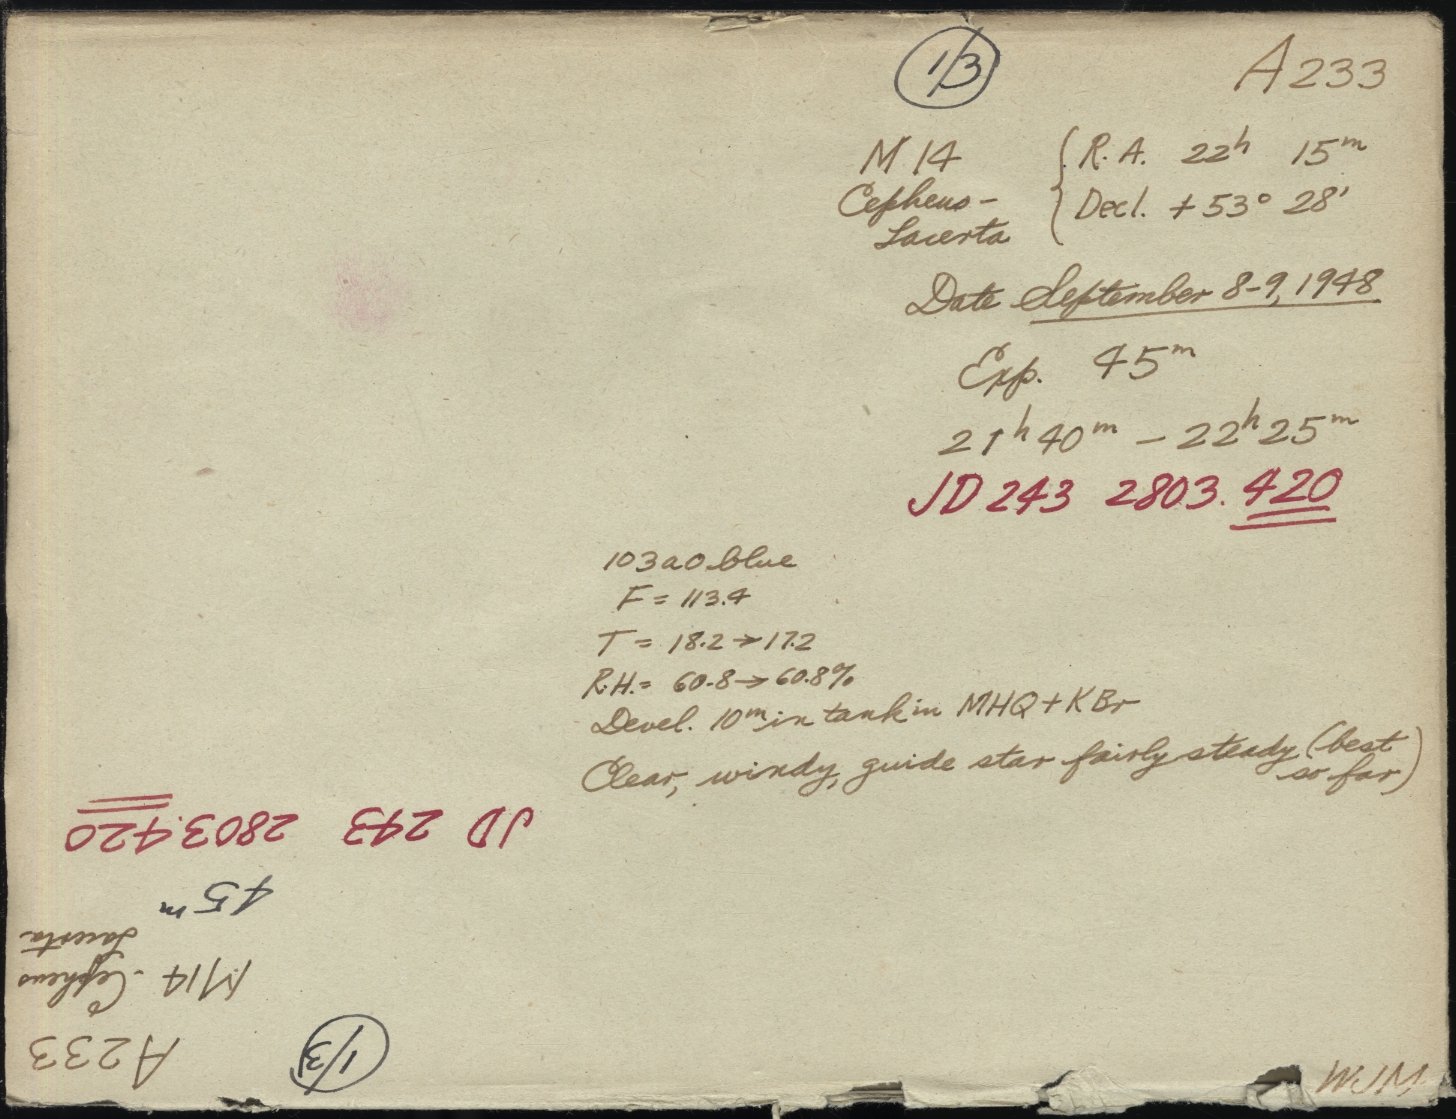 1/3
A233
M 14 { R.A. 22h 15m
Cepheus - { Decl. + 53° 28'
Lacerta
Date September 8-9, 1948
Exp. 45m
21h 40m - 22h 25m
JD 243 2803.420
103aO blue
F = 113.4
T = 18.2 → 17.2
R.H. = 60.8 → 60.8%
Devel. 10m in tank in MHQ + KBr
Clear, windy, guide star fairly steady (best
so far)
WJM
1/3
A233
M14 - Cepheus
Lacerta
45m
JD 243 2803.420